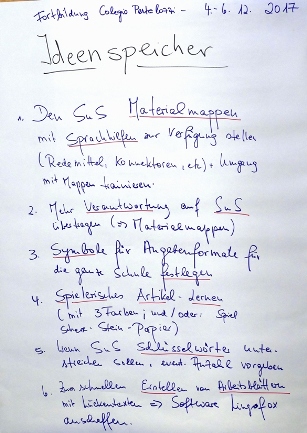 Fortbildung Colegio Pestalozzi - 4.-6.12.2017
Ideenspeicher
1. Den SuS Materialmappen
mit Sprachhilfen zur Verfügung stellen
(Redemittel, Konnektoren, etc) + Umgang
mit Mappen trainieren.
2. Mehr Verantwortung auf SuS
übertragen (=> Materialmappen)
3. Symbole für Aufgabenformate für
die ganze Schule festlegen
4. Spielerisches Artikel-lernen
(mit 3 Farben; und/oder: Spiel
Schere-Stein-Papier)
5. Wenn SuS Schlüsselwörter unter-
streichen sollen, event. Anzahl vorgeben
6. Zum schnellen Erstellen von Arbeitsblättern
mit Lückentexten => Software Lingofox
anschaffen.